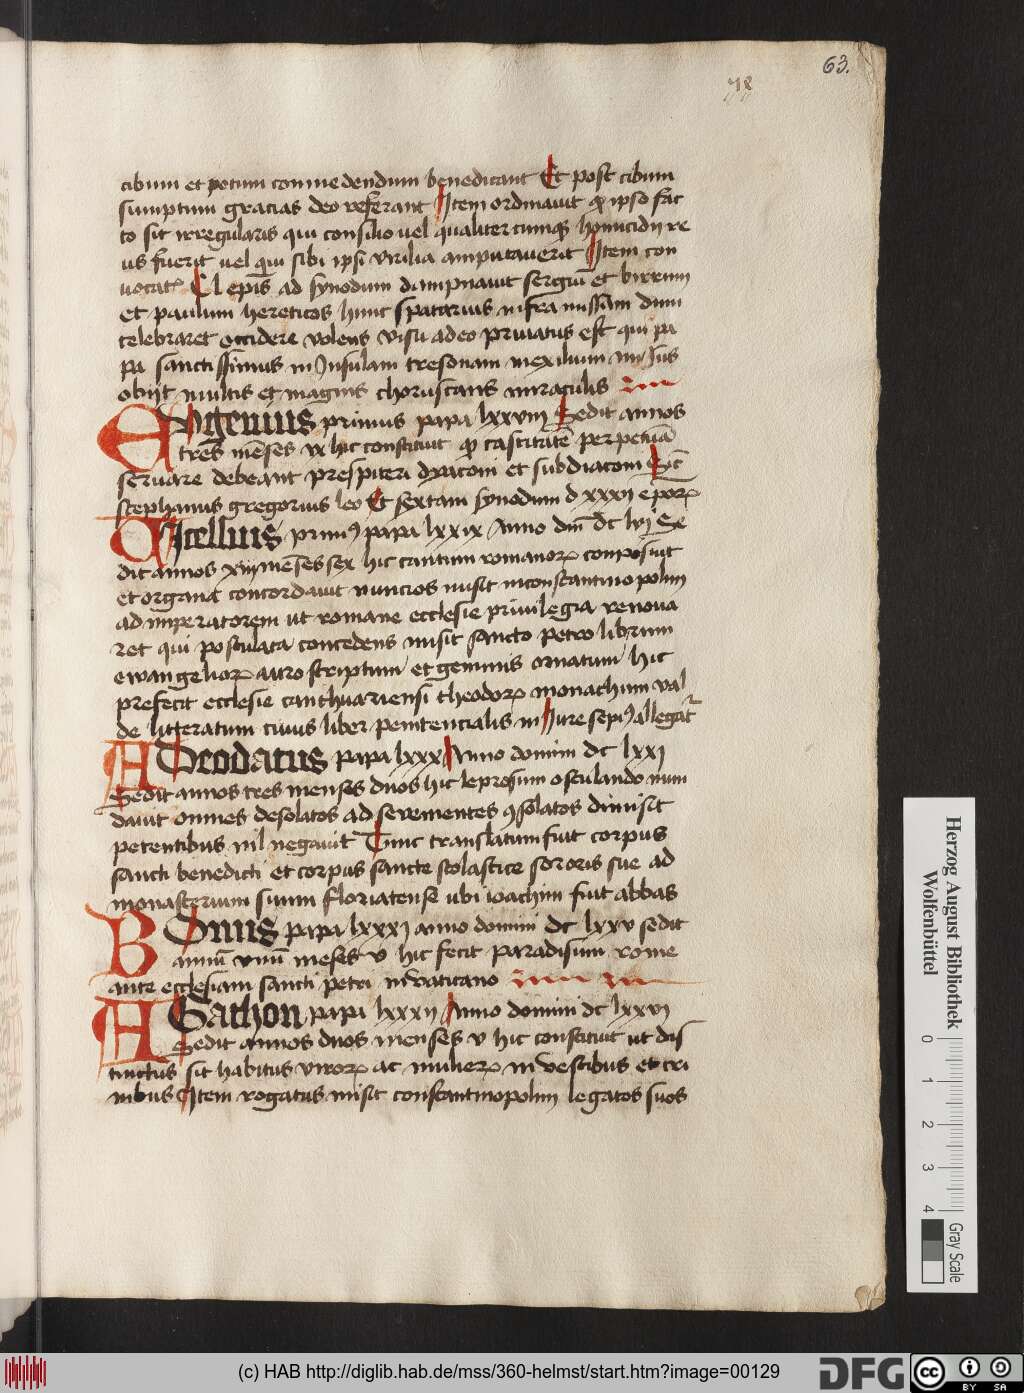 63.
78
cibum et potum conmedendum benedicant Et post cibum
sumptum gracias deo referant Item ordinauit qͦ ipso fac
to sit irregularis qui consilio uel qualitercumqꝫ homicidij re
us fuerit uel qui sibi ipsi virilia amputauerit Item con
uocatꝭ CL epis̄ ad synodum dampnauit sergiū et birrum
et paulum hereticos hunc spatarius infra missam dum
celebraret occidere volens visu a deo priuatus est qui pa
pa sanctissimus in Insulam cresonam in exilium missus
obijt multis et magnis choruscans miraculis
EVgenius primus papa lxxviij Sedit annos
tres mēses ix hic constituit qͦ castitatē perpetuā
seruare debeant prespiteri dyaconi et subdiaconi Sic̄
stephanus gregorius leo Et sextam synodum d xxxij eporꝝ
VItellius primꝰ papa lxxix Anno dnī dc lvj Se
dit annos xiiij mēses sex hic cantum romanorꝝ composuit
et organa concordauit nuncios misit in constantinopolim
ad imperatorem ut romane ecclesie priuilegia renoua
ret qui postulata concedens misit sancto petro librum
ewangeliorꝝ auro scriptum et gemmis ornatum hic
prefecit ecclesie canthuariensi theodorꝝ monachum val
de litteratum cuius liber penitencialis in Iure sepiꝰ allegatꝛ
ADeodatus papa lxxx Anno domini dc lxxj
Sedit annos tres menses duos hic leprosum osculando mun
dauit omnes desolatos ad se venientes ꝯsolatos dimisit
petentibus nil negauit Tunc translatum fuit corpus
sancti benedicti et corpus sancte scolastice sororis sue ad
monasterium suum floriatense ubi ioachim fuit abbas
BOnus papa lxxxj anno domini dc lxxv sedit
annū vnū meses v hic fecit paradisum rome
ante ecclesiam sancti petri in vaticano
AGathon papa lxxxij Anno domini dc lxxvj
Sedit annos duos menses v hic constituit ut dis
tinctus sit habitus virorꝝ ac mulierꝝ in vestibus et cri
nibus Item rogatus misit constantinopolim legatos suos
Herzog August Bibliothek
Wolfenbüttel
0 1 2 3 4
Gray Scale
(c) HAB http://diglib.hab.de/mss/360-helmst/start.htm?image=00129
DFG
cc BY SA